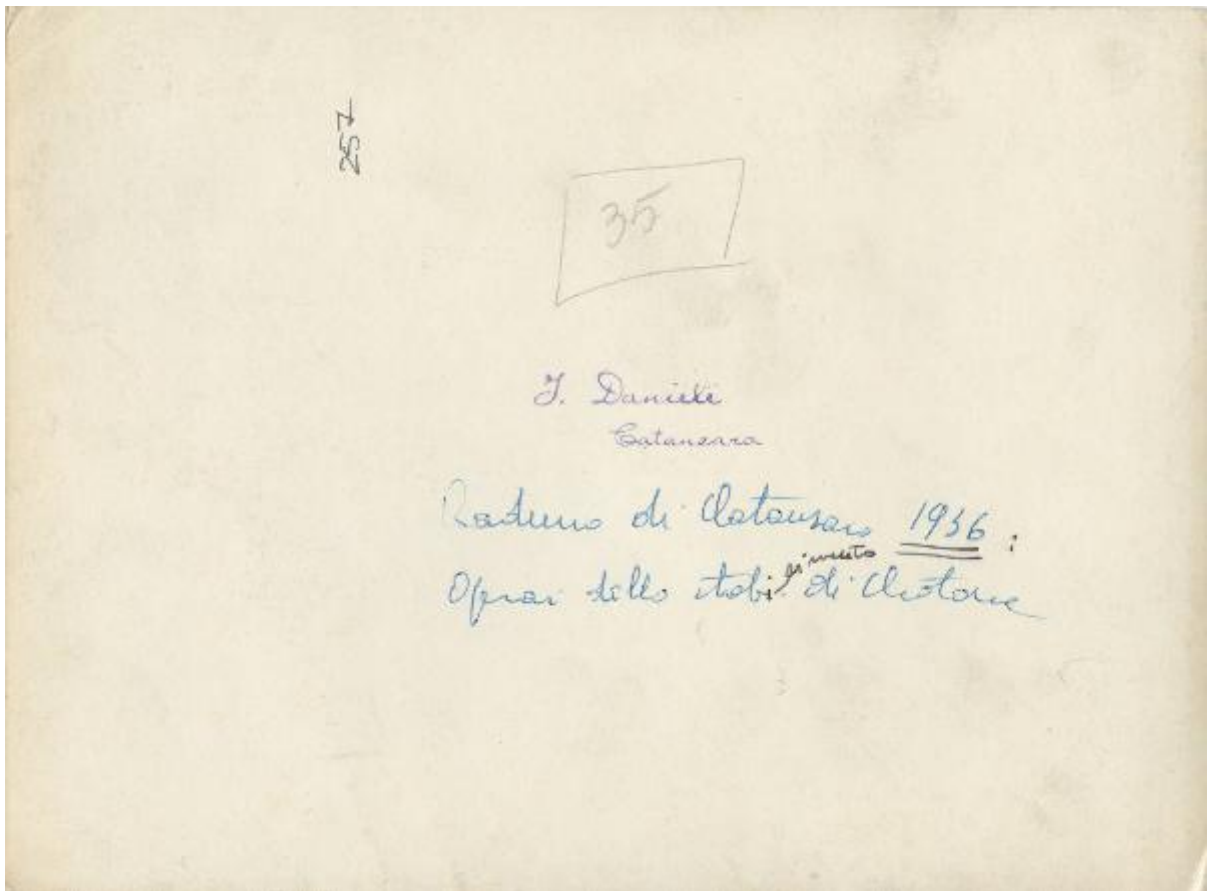 257
35
J. Daniele
Catanzaro
Raduno di Catanzaro 1936 :
Operai dello stabilimento di Crotone